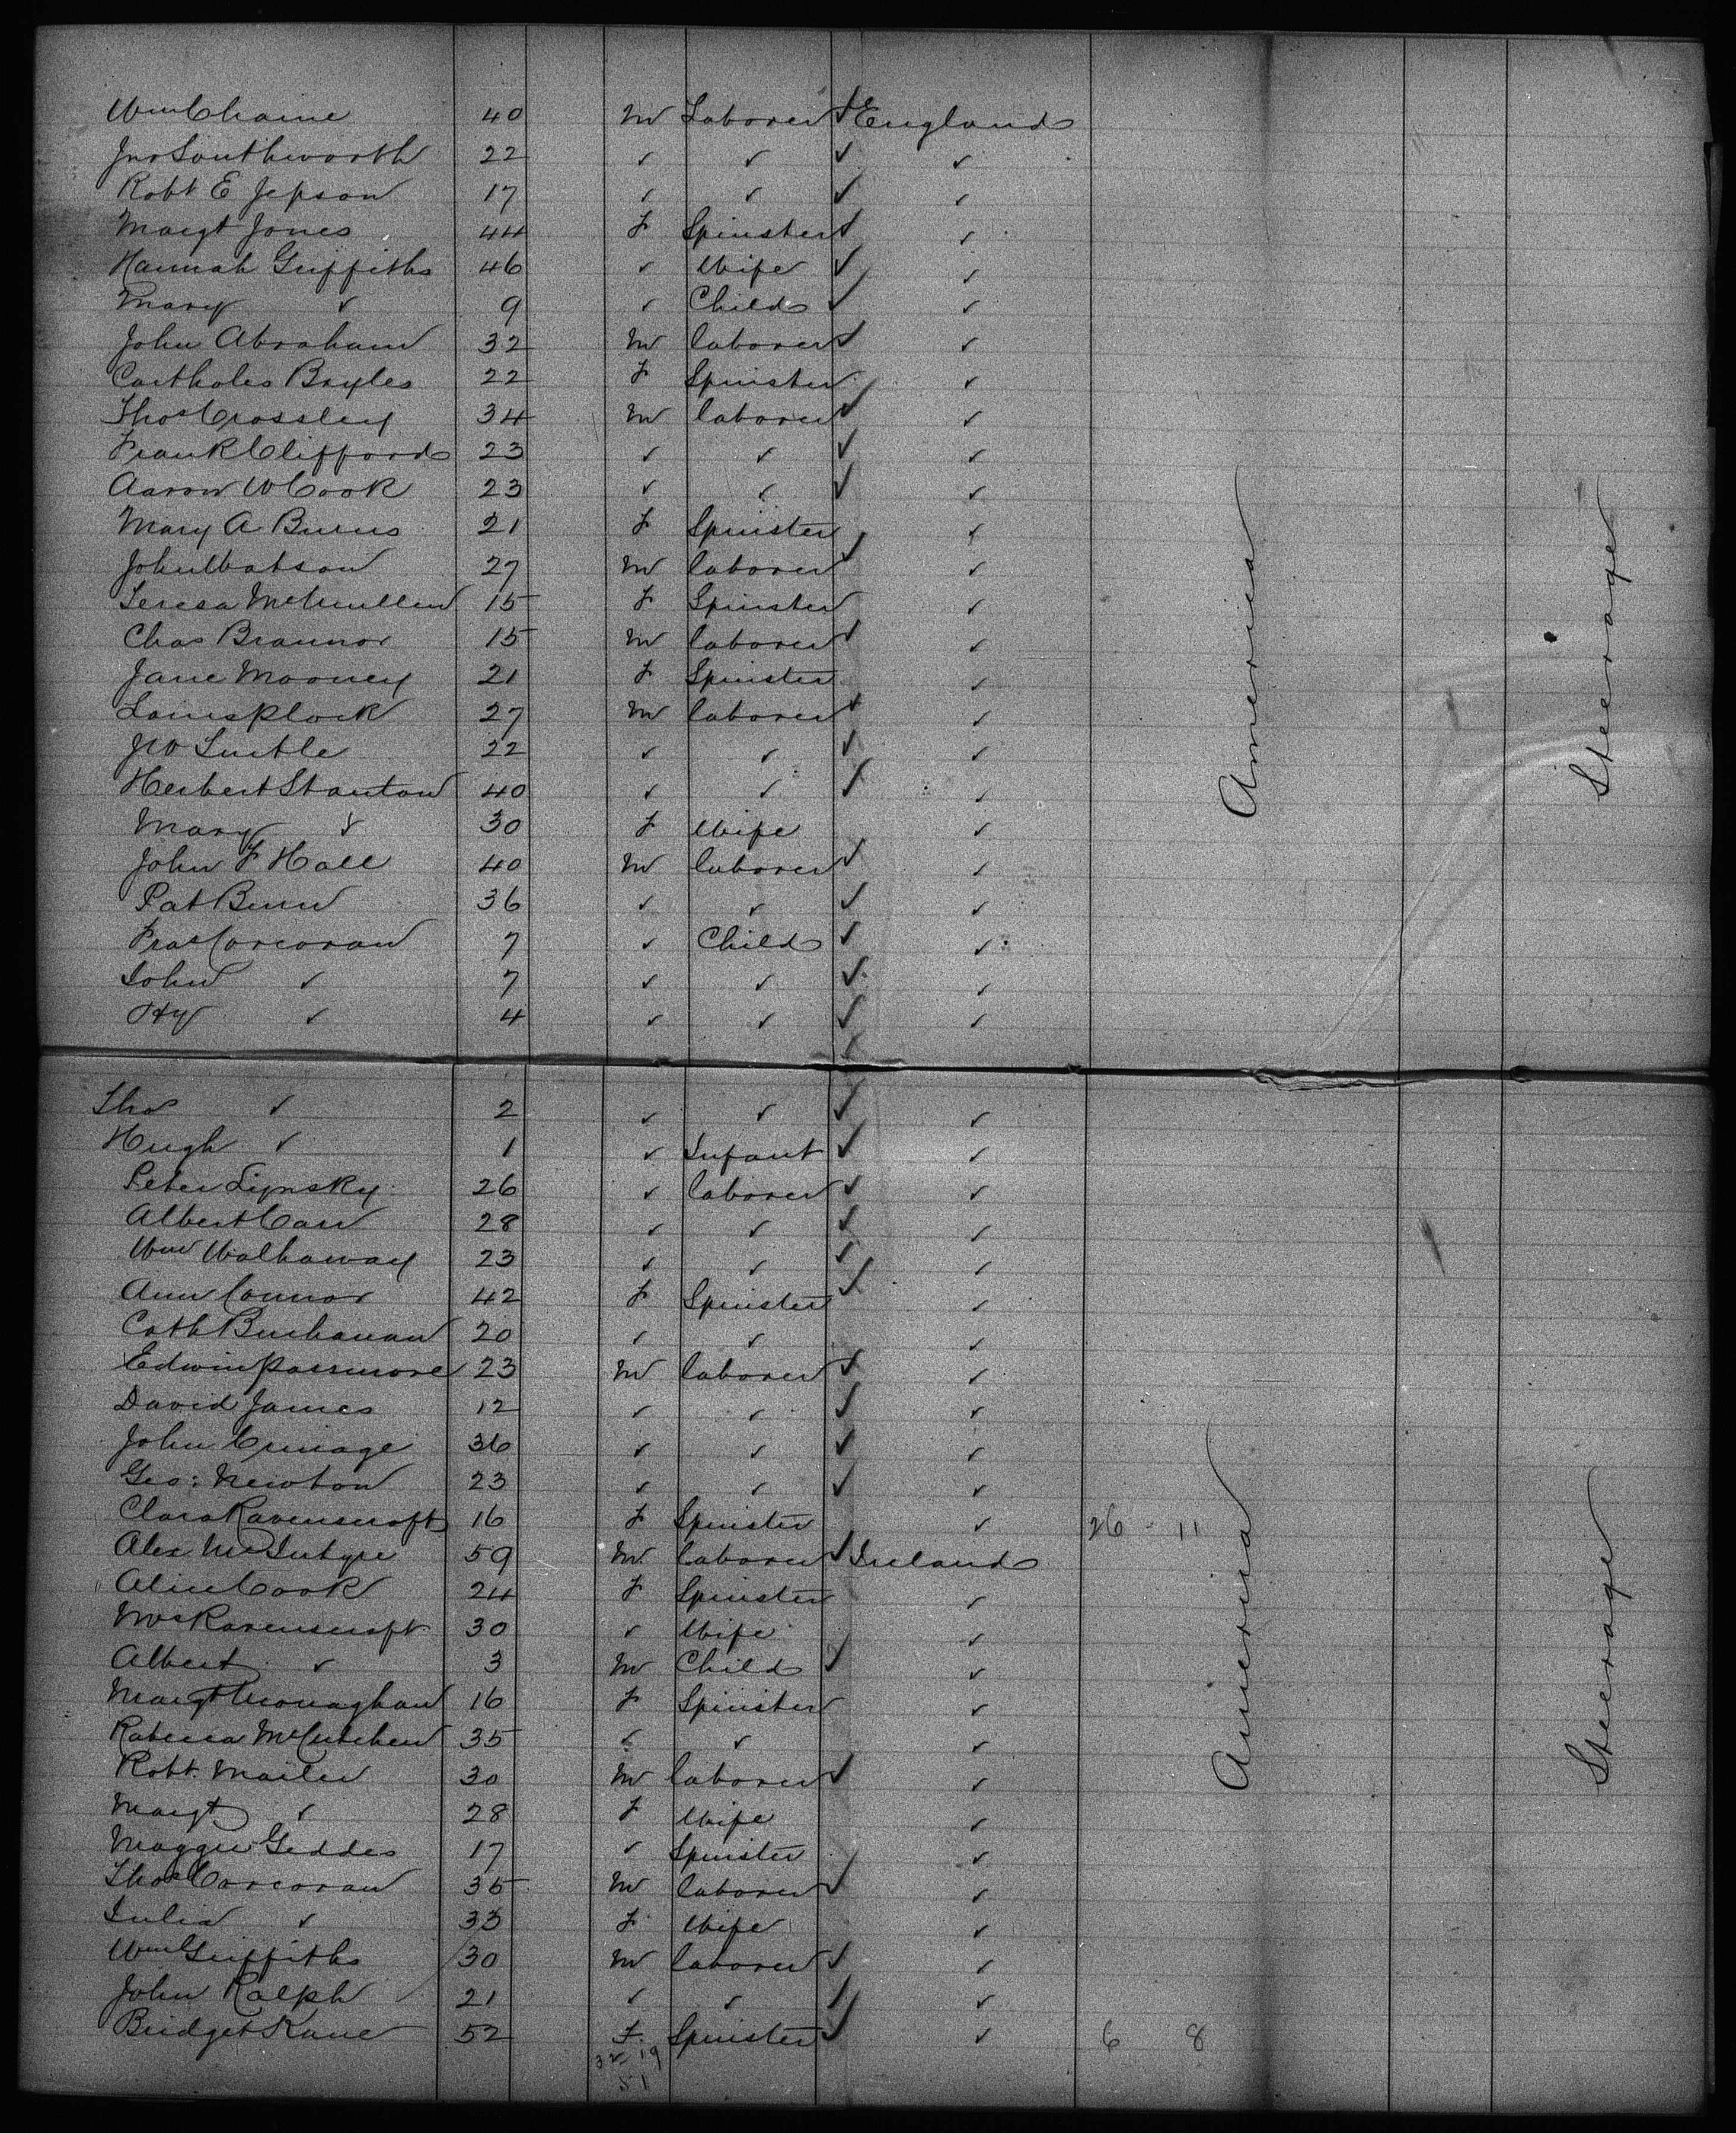 Wm Chaine 40 M Laborer ✓ England
Jno Southworth 22 ✓ ✓ ✓ ✓
Robt E Jepson 17 ✓ ✓ ✓ ✓
Margt Jones 44 F Spinster ✓ ✓
Hannah Griffiths 46 ✓ Wife ✓ ✓
Mary ✓ 9 ✓ Child ✓ ✓
John Abraham 32 M laborer ✓ ✓
Bryles 22 F Spinster ✓
Thos Crossley 34 M laborer ✓ ✓
Frank Clifford 23 ✓ ✓ ✓ ✓
Aaron W Cook 23 ✓ ✓ ✓ ✓
Mary A Burns 21 F Spinster ✓
John Watson 27 M laborer ✓ ✓
Teresa McMullen 15 F Spinster ✓
Chas Brannor 15 M laborer ✓ ✓
Jane Mooney 21 F Spinster ✓
Louis Plock 27 M laborer ✓ ✓
Jno 22 ✓ ✓ ✓ ✓
Herbert Stanton 40 ✓ ✓ ✓ ✓
Mary ✓ 30 F Wife ✓
John F Hall 40 M laborer ✓ ✓
Pat Bunn 36 ✓ ✓ ✓ ✓
Fras Corcoran 7 ✓ Child ✓ ✓
John ✓ 7 ✓ ✓ ✓ ✓
Hy ✓ 4 ✓ ✓ ✓ ✓
America
Steerage
Thos ✓ 2 ✓ ✓ ✓ ✓
Hugh ✓ 1 ✓ Infant ✓ ✓
Peter Lynsky 26 ✓ laborer ✓ ✓
Albert Carr 28 ✓ ✓ ✓ ✓
Wm Walhaway 23 ✓ ✓ ✓ ✓
Ann Connor 42 F Spinster ✓ ✓
Cath Buchanan 20 ✓ ✓ ✓
Edwin Passmore 23 M laborer ✓ ✓
David James 12 ✓ ✓ ✓ ✓
John 36 ✓ ✓ ✓ ✓
Geo: Newton 23 ✓ ✓ ✓ ✓
Clara Ravenscroft 16 F Spinster ✓ 26 - 11
Alex McIntyre 59 M laborer ✓ Ireland
Alice Cook 24 F Spinster ✓
Mrs Ravenscroft 30 ✓ Wife ✓
Albert ✓ 3 M Child ✓ ✓
Margt Monaghan 16 F Spinster ✓
Rabecca McCutchen 35 ✓ ✓ ✓
Robt. Mailer 30 M laborer ✓ ✓
Margt ✓ 28 F Wife ✓
Maggie Geddes 17 ✓ Spinster ✓
Thos Corcoran 35 M laborer ✓ ✓
Julia ✓ 33 F Wife ✓
Wm Griffiths 30 M laborer ✓ ✓
John Ralph 21 ✓ ✓ ✓ ✓
Bridget Kane 52 F. Spinster ✓ ✓ 6 8
America
Steerage
32 19
51